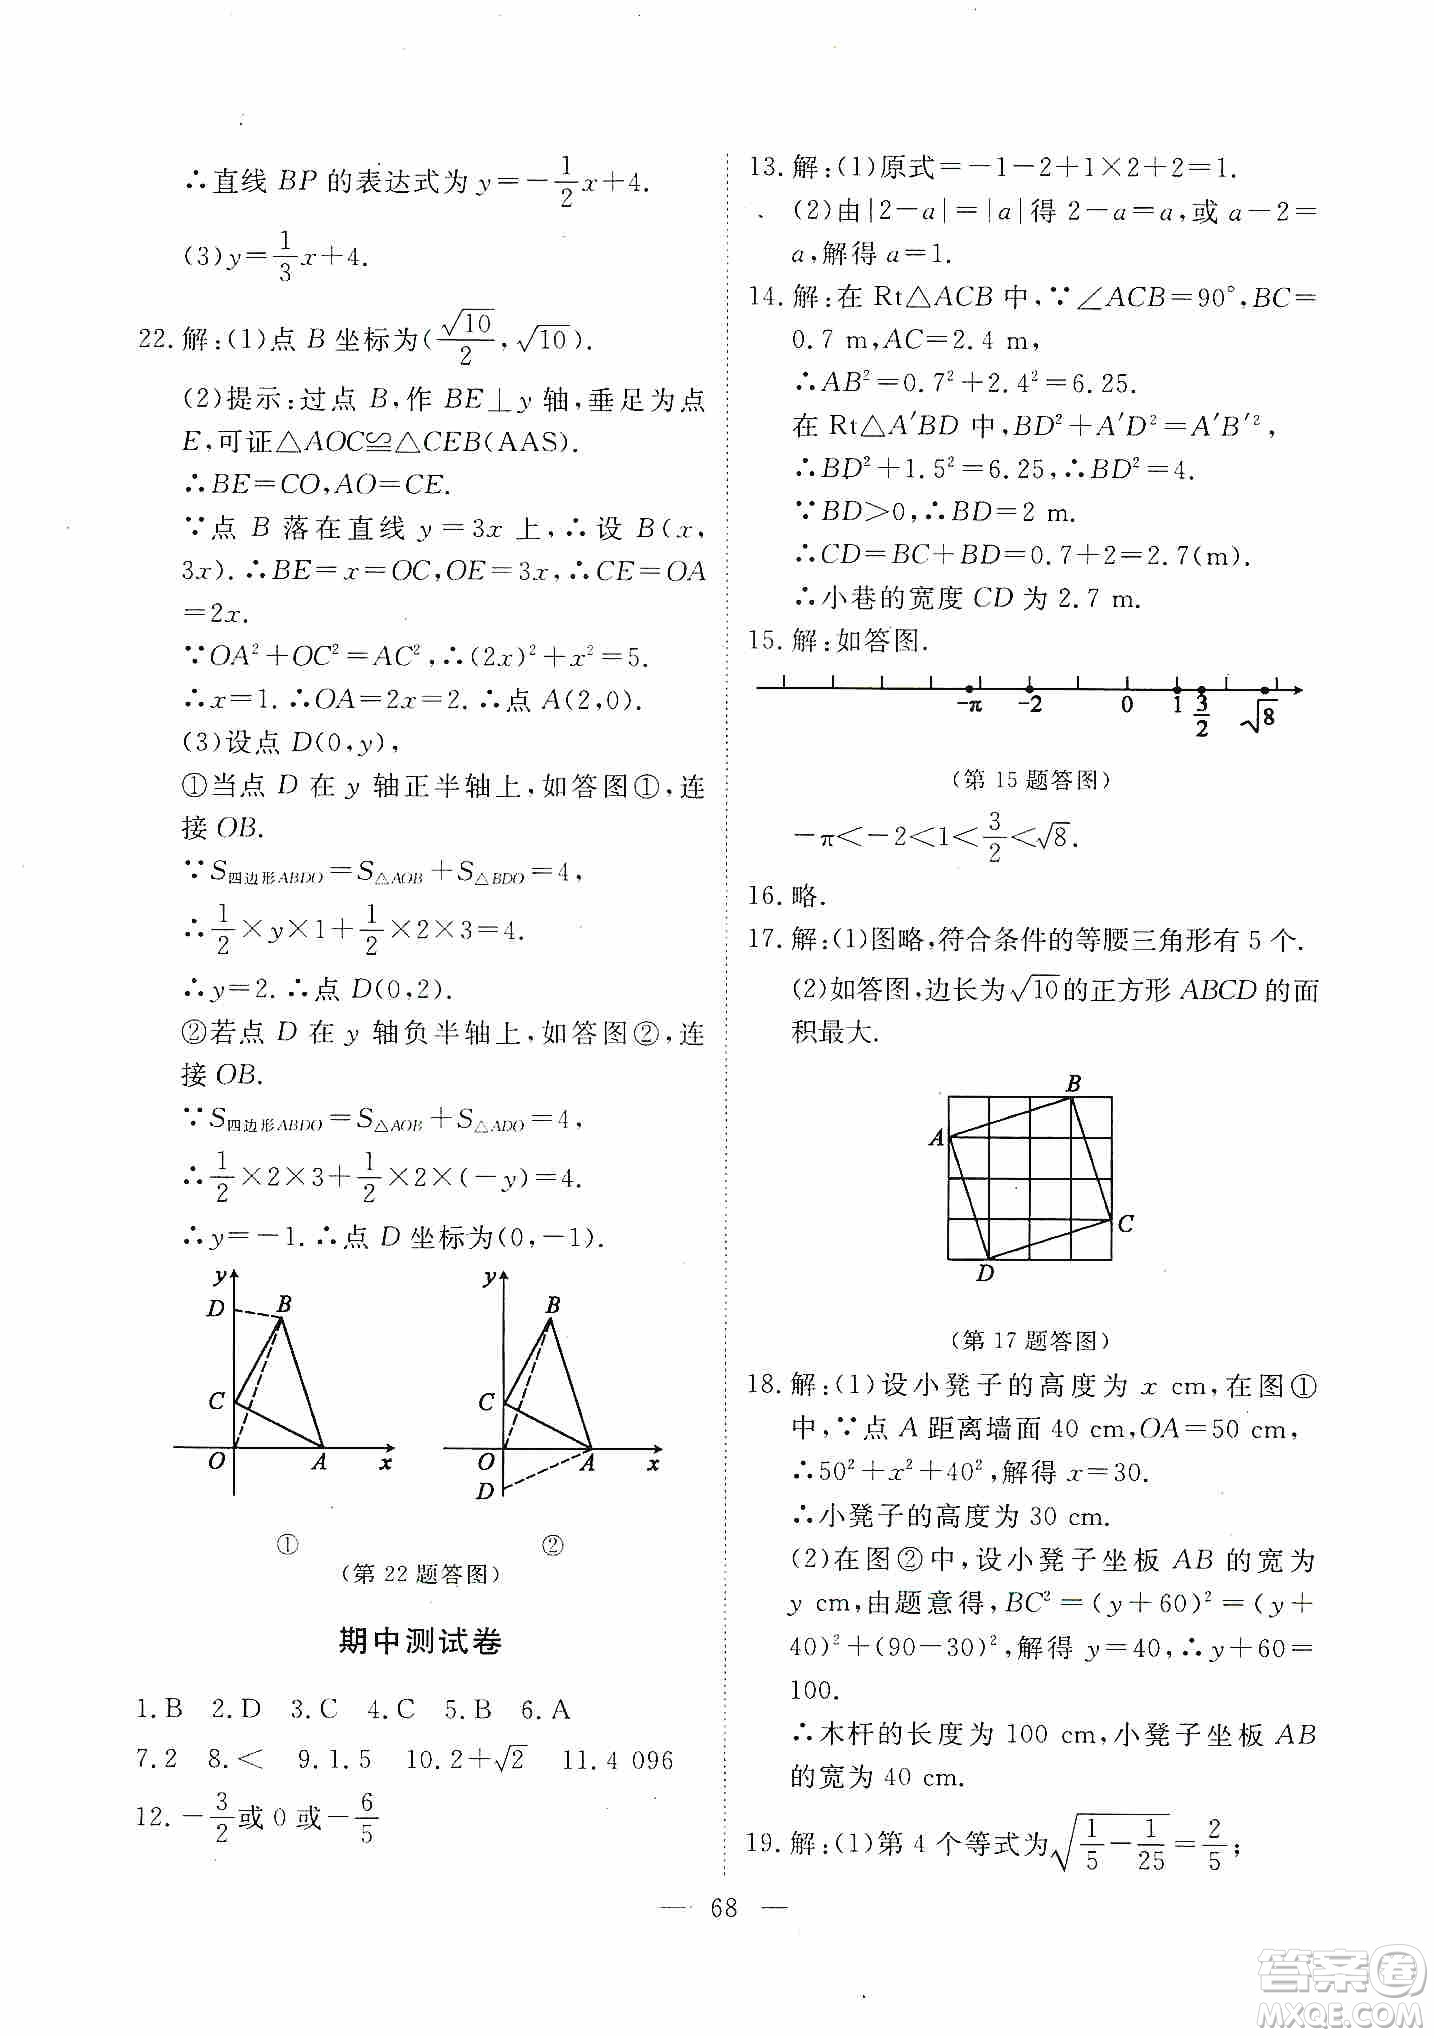 ∴直线 BP 的表达式为 y=-1/2x+4.
(3)y=1/3x+4.
22.解:(1)点 B 坐标为(√10/2,√10).
(2)提示:过点 B,作 BE⊥y 轴,垂足为点
E,可证△AOC≌△CEB(AAS).
∴BE=CO,AO=CE.
∵点 B 落在直线 y=3x 上,∴设 B(x,
3x).∴BE=x=OC,OE=3x,∴CE=OA
=2x.
∵OA²+OC²=AC²,∴(2x)²+x²=5.
∴x=1.∴OA=2x=2.∴点 A(2,0).
(3)设点 D(0,y),
①当点 D 在 y 轴正半轴上,如答图①,连
接 OB.
∵S四边形ABDO=S△AOB+S△BDO=4,
∴1/2×y×1+1/2×2×3=4.
∴y=2.∴点 D(0,2).
②若点 D 在 y 轴负半轴上,如答图②,连
接 OB.
∵S四边形ABDO=S△AOB+S△ADO=4,
∴1/2×2×3+1/2×2×(-y)=4.
∴y=-1.∴点 D 坐标为(0,-1).
y D B C O A x
y B C O A x D
① ②
(第 22 题答图)
期中测试卷
1.B 2.D 3.C 4.C 5.B 6.A
7.2 8.< 9.1.5 10.2+√2 11.4 096
12.-3/2或 0 或-6/5
13.解:(1)原式=-1-2+1×2+2=1.
(2)由|2-a|=|a|得 2-a=a,或 a-2=
a,解得 a=1.
14.解:在 Rt△ACB 中,∵∠ACB=90°,BC=
0.7 m,AC=2.4 m,
∴AB²=0.7²+2.4²=6.25.
在 Rt△A′BD 中,BD²+A′D²=A′B′²,
∴BD²+1.5²=6.25,∴BD²=4.
∵BD>0,∴BD=2 m.
∴CD=BC+BD=0.7+2=2.7(m).
∴小巷的宽度 CD 为 2.7 m.
15.解:如答图.
-π -2 0 1 3/2 √8
(第 15 题答图)
-π<-2<1<3/2<√8.
16.略.
17.解:(1)图略,符合条件的等腰三角形有 5 个.
(2)如答图,边长为√10的正方形 ABCD 的面
积最大.
B
A
C
D
(第 17 题答图)
18.解:(1)设小凳子的高度为 x cm,在图①
中,∵点 A 距离墙面 40 cm,OA=50 cm,
∴50²=x²+40²,解得 x=30.
∴小凳子的高度为 30 cm.
(2)在图②中,设小凳子坐板 AB 的宽为
y cm,由题意得,BC²=(y+60)²=(y+
40)²+(90-30)²,解得 y=40,∴y+60=
100.
∴木杆的长度为 100 cm,小凳子坐板 AB
的宽为 40 cm.
19.解:(1)第 4 个等式为√(1/5-1/25)=2/5;
— 68 —
答案卷
MXQE.COM